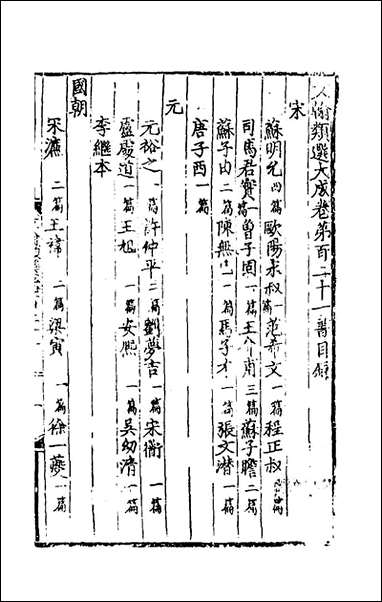 人倫類選大成卷第百二十一書目錄
宋
蘇明允四篇歐陽永叔一篇范希文一篇程正叔
司馬君實一篇曾子固一篇王介甫三篇蘇子瞻二篇
蘇子由二篇陳無己一篇馬子才一篇張文潛一篇
唐子西一篇
元
元裕之一篇許仲平二篇劉夢吉一篇宋衜一篇
盧處道一篇王旭一篇安熙一篇吳幼清一篇
李繼本
國朝
宋濂二篇王禕二篇梁寅一篇徐一夔一篇